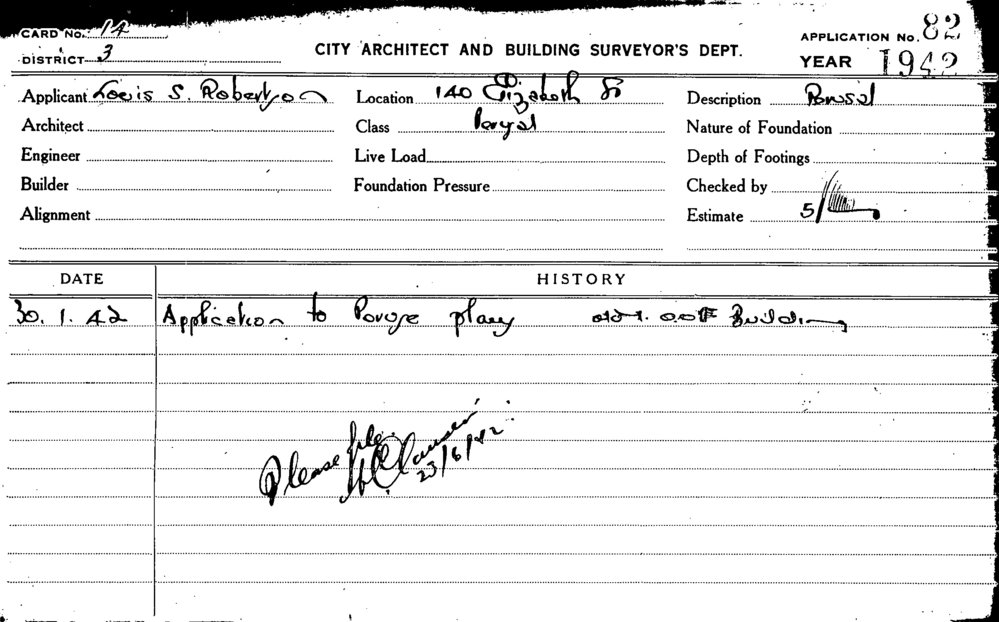 CARD No. 14
APPLICATION No. 82
DISTRICT 3
CITY ARCHITECT AND BUILDING SURVEYOR'S DEPT.
YEAR 1942
Applicant Louis S. Robertson Location 140 Elizabeth St Description
Architect Class Nature of Foundation
Engineer Live Load Depth of Footings
Builder Foundation Pressure Checked by
Alignment Estimate 5/
DATE HISTORY
30. 1. 42 Application to Building
Please file
23/6/42